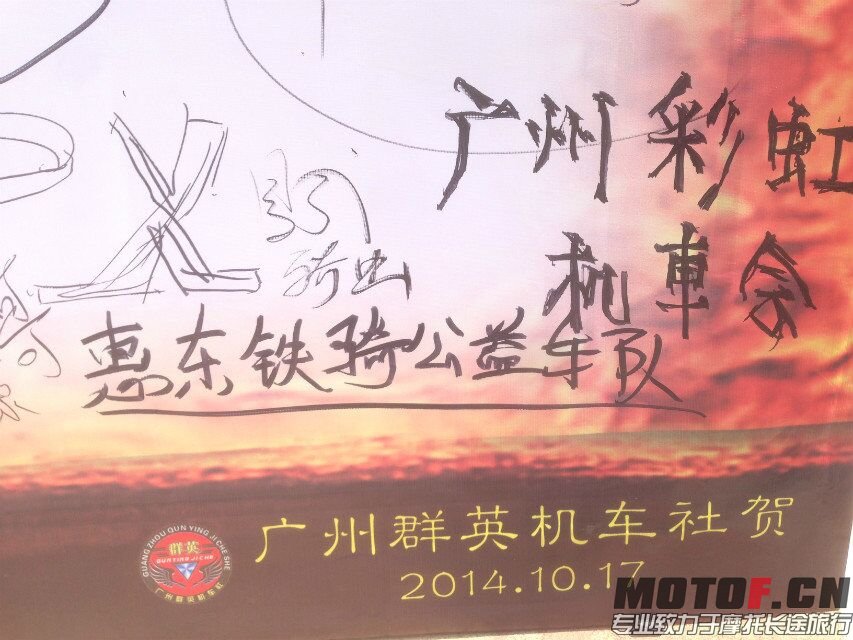 广州彩虹
机車会
惠东铁琦公益车队
广州群英机车社贺
2014.10.17
GUANG ZHOU QUN YING JI CHE SHE
群英
QUN YING JI CHE
广州群英机车社
MOTOF.CN
专业致力于摩托长途旅行